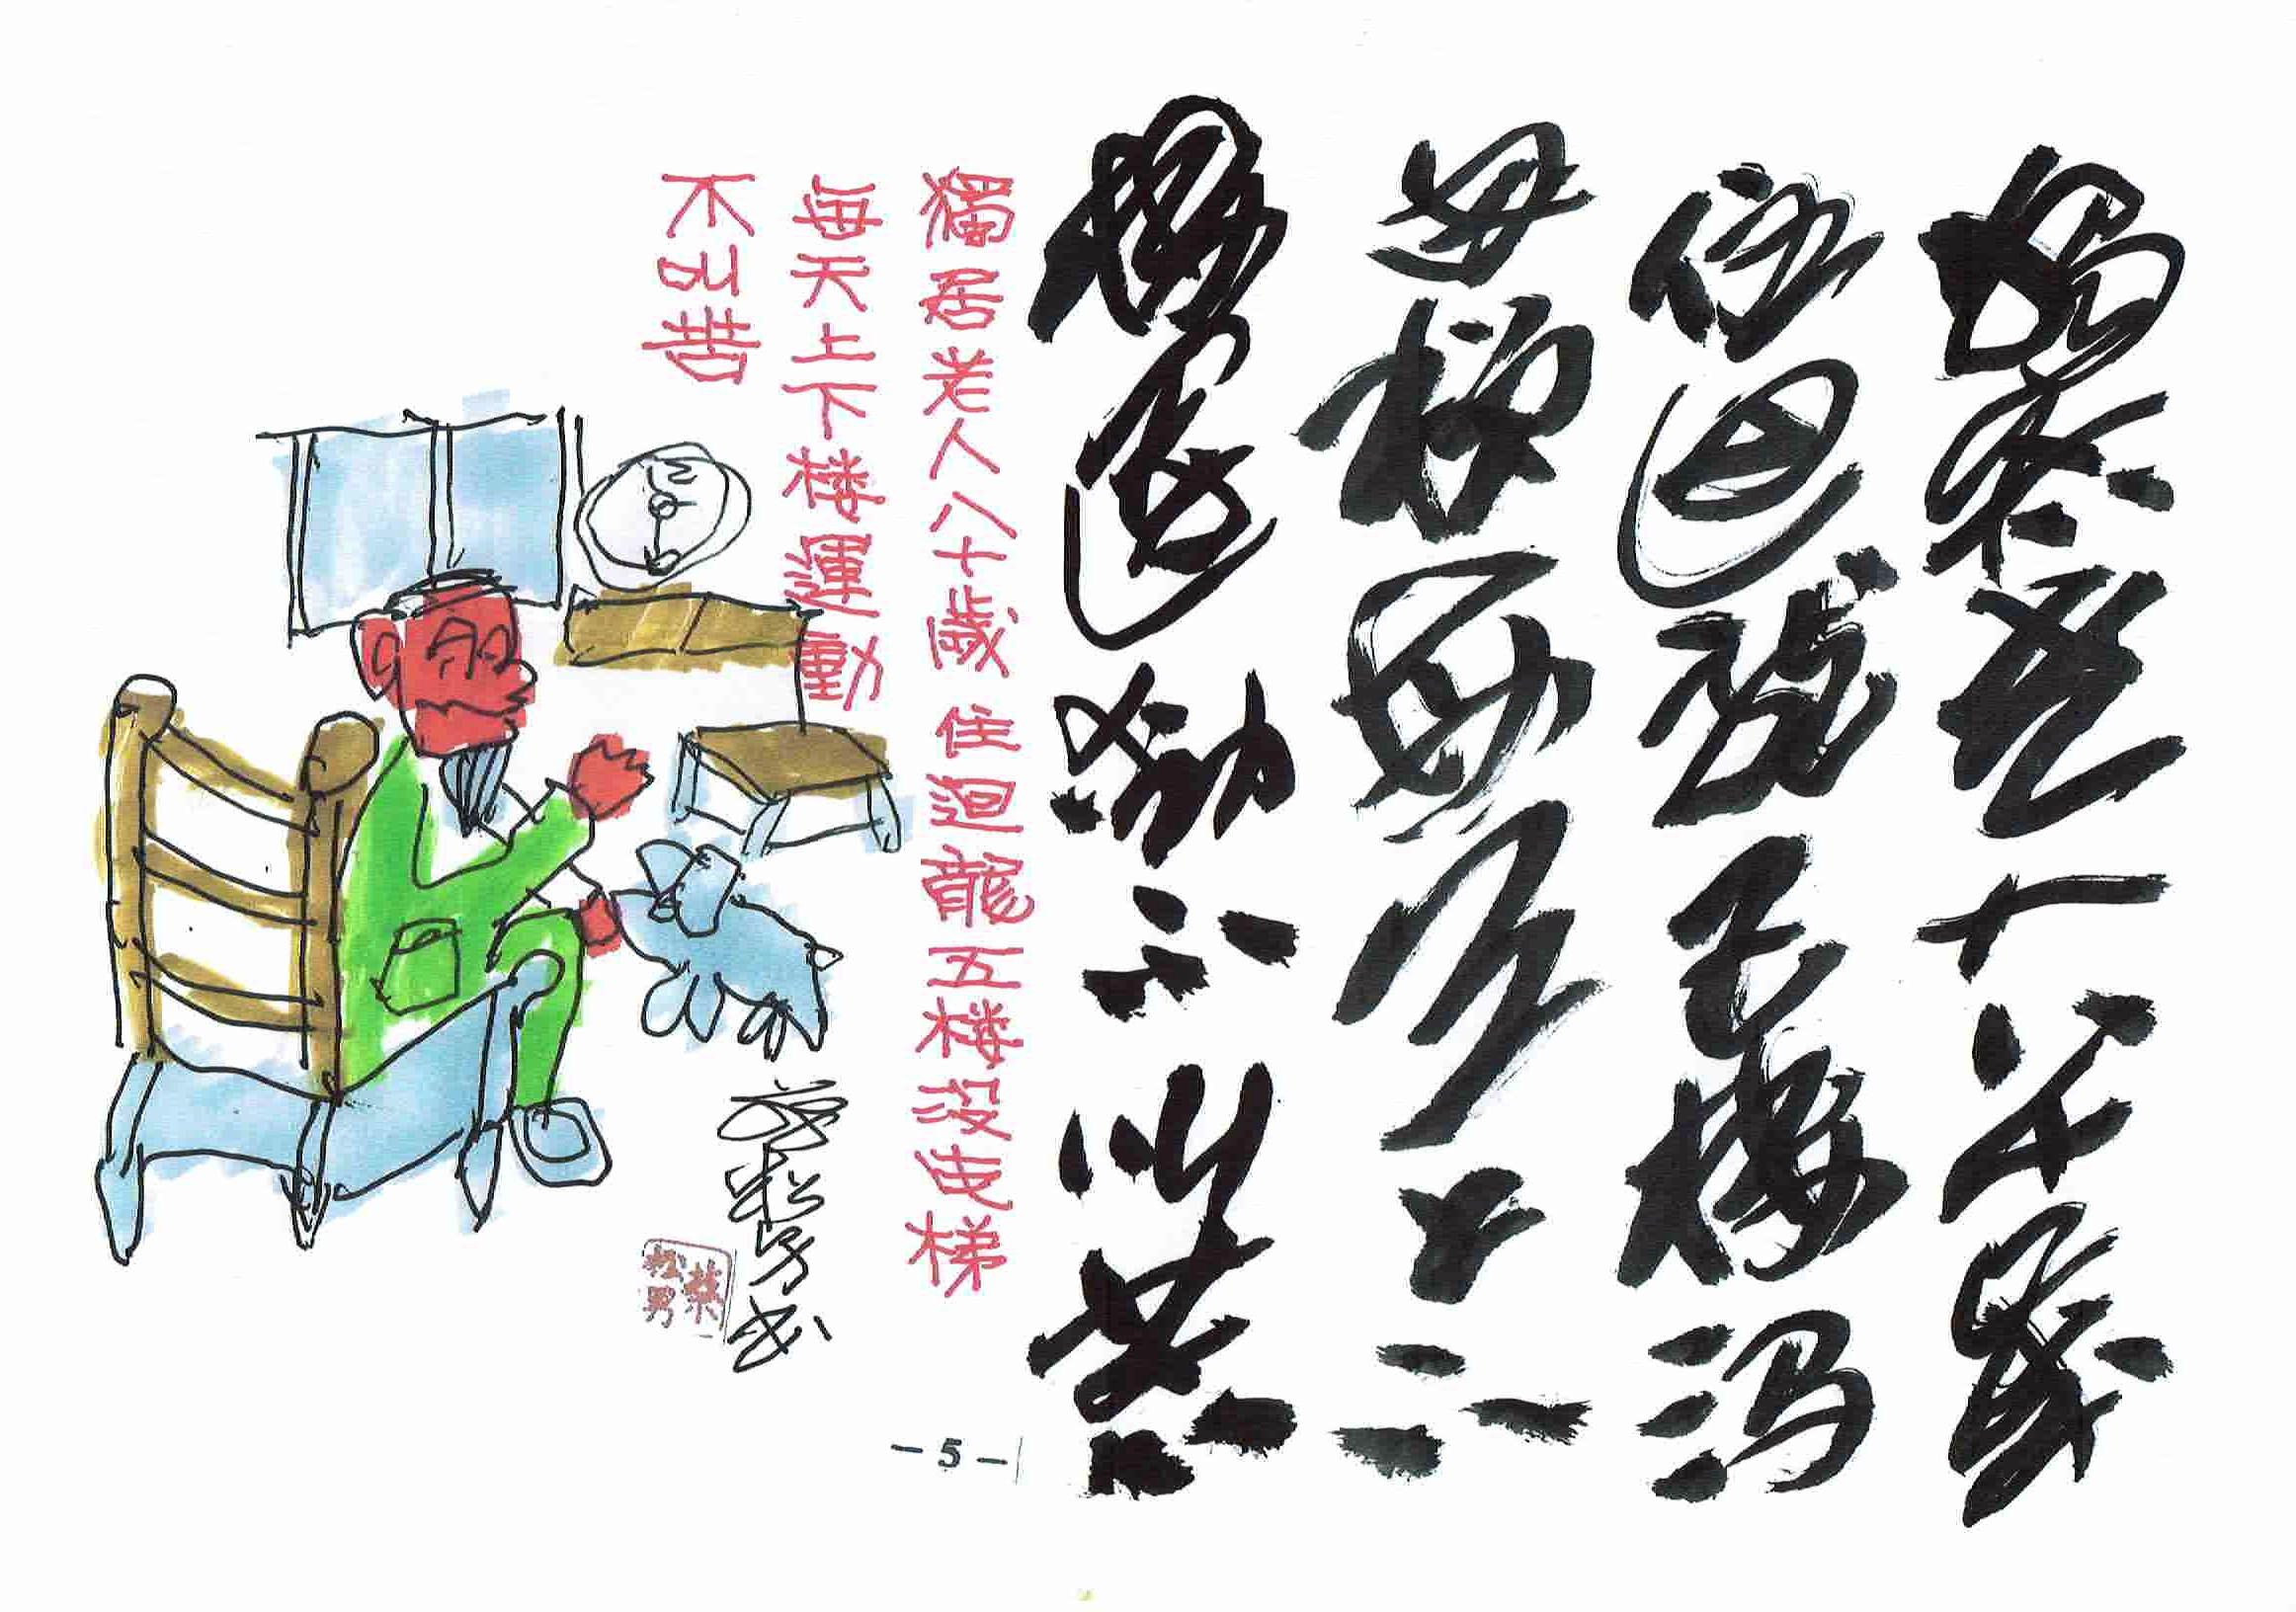 獨居老人八十歲
住迴龍五樓沒
电梯每天上下
樓運動不叫苦
獨居老人八十歲 住迴龍五楼没电梯
每天上下楼運動
不叫苦
蔡松男書
蔡松男
- 5 -